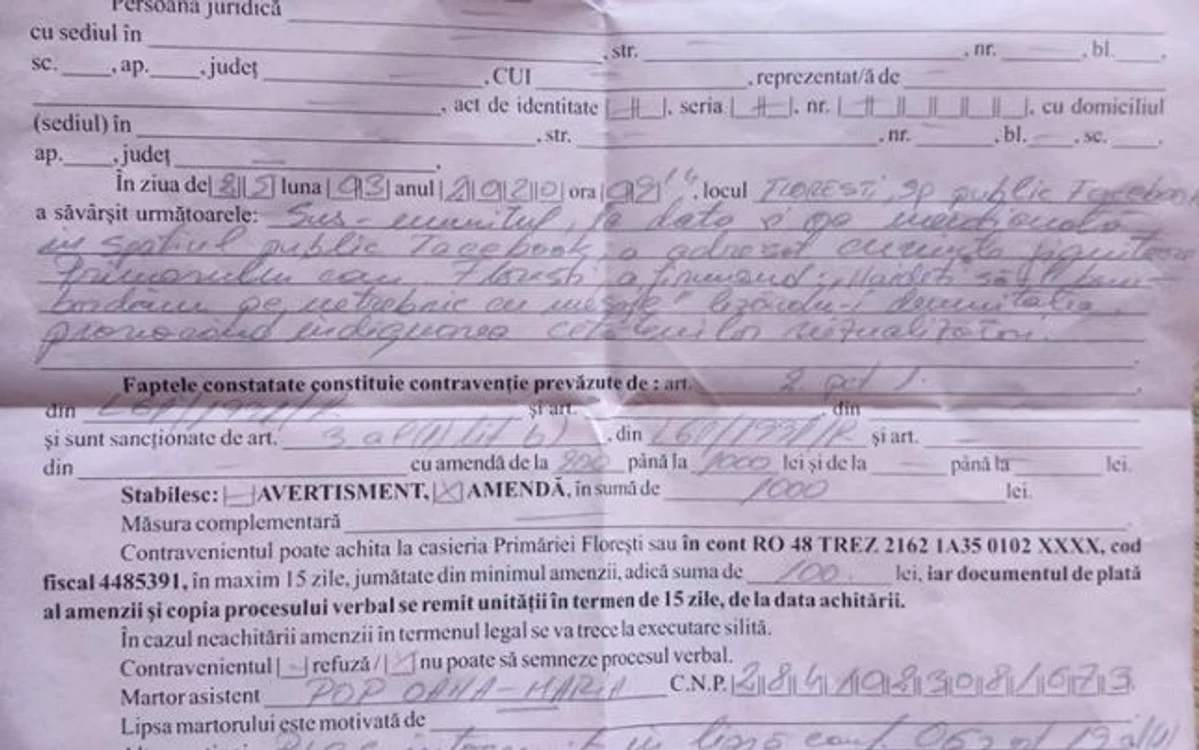 Persoana juridică
cu sediul în , str. , nr. , bl. ,
sc. , ap. , județ , CUI , reprezentat/ă de
, act de identitate | |, seria | |, nr. | |, cu domiciliul
(sediul) în , str. , nr. , bl. , sc. ,
ap. , județ ,
În ziua de |2|5| luna |03| anul |2|0|2|0| ora |09| , locul FLOREȘTI, sp public Facebook
a săvârșit următoarele: Sus-numitul, la data și ora menționată
în spațiul public Facebook, a adresat cuvinte jignitoare
primarului com. Florești, afirmând: „Haideți să îl bom-
bardăm pe netrebnic cu mesaje" lezându-i demnitatea,
provocând indignarea cetățenilor vizualizatori.
Faptele constatate constituie contravenție prevăzute de : art. 2 pct 1.
din L61/1991/R și art. , din
și sunt sancționate de art. 3 al(1) lit b) , din L61/1991/R și art.
din cu amendă de la 200 până la 1000 lei și de la până la lei.
Stabilesc: | |AVERTISMENT, |X| AMENDĂ, în sumă de 1000 lei.
Măsura complementară
Contravenientul poate achita la casieria Primăriei Florești sau în cont RO 48 TREZ 2162 1A35 0102 XXXX, cod
fiscal 4485391, în maxim 15 zile, jumătate din minimul amenzii, adică suma de 100 lei, iar documentul de plată
al amenzii și copia procesului verbal se remit unității în termen de 15 zile, de la data achitării.
În cazul neachitării amenzii în termenul legal se va trece la executare silită.
Contravenientul | | refuză / |X| nu poate să semneze procesul verbal.
Martor asistent POP OANA-MARIA C.N.P.
Lipsa martorului este motivată de
în lipsă conf. art 19 al(1)